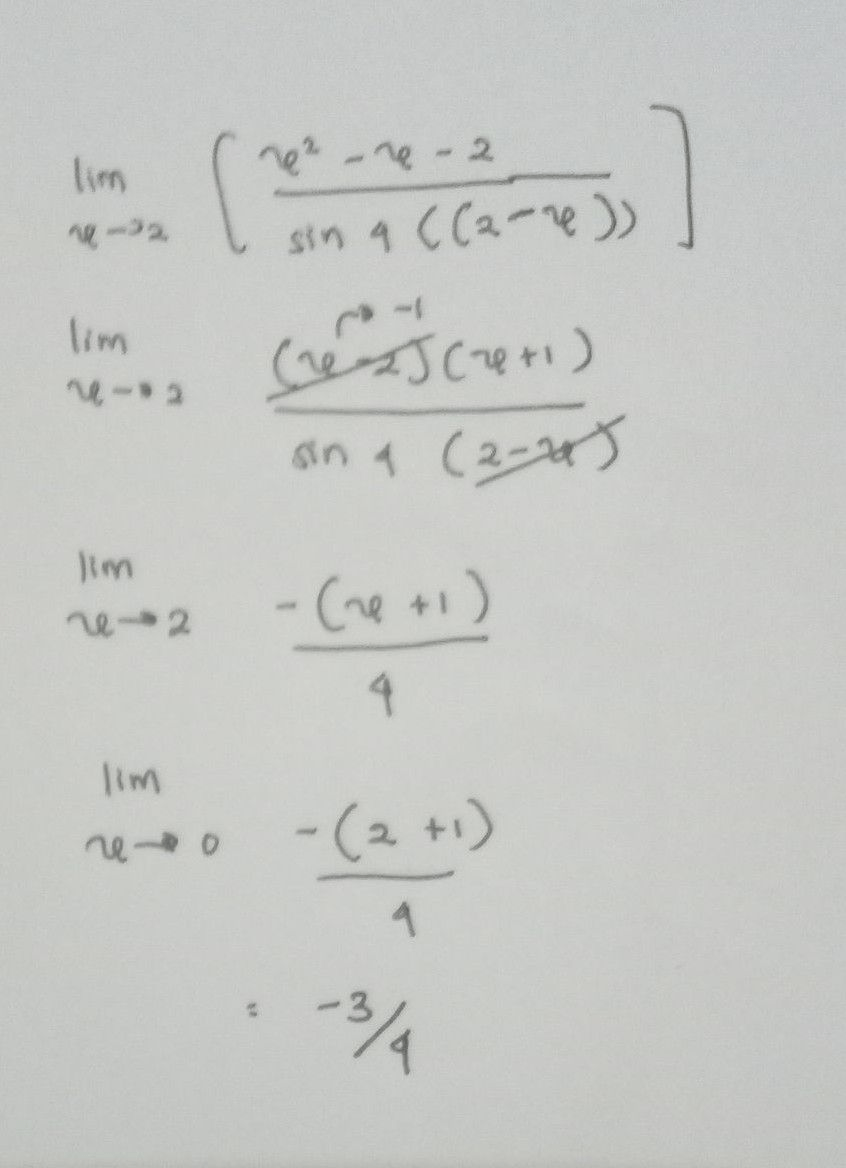 lim x→2 [ x² - x - 2 / sin 4 ((2-x)) ]
lim x→2 (x-2)(x+1) / sin 4 (2-x) → -1
lim x→2 -(x+1) / 4
lim x→0 -(2+1) / 4
= -3/4